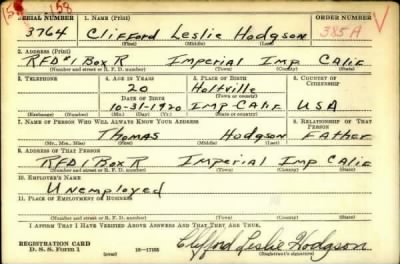 158 158
SERIAL NUMBER 1. NAME (Print) ORDER NUMBER
3764 Clifford Leslie Hodgson 385A
(First) (Middle) (Last)
2. ADDRESS (Print)
RFD#1 Box R Imperial Imp Calif
(Number and street or R. F. D. number) (Town) (County) (State)
3. TELEPHONE 4. AGE IN YEARS 5. PLACE OF BIRTH 6. COUNTRY OF CITIZENSHIP
20 Holtville
DATE OF BIRTH (Town or county)
10-31-1920 Imp-Calif USA
(Exchange) (Number) (Mo.) (Day) (Yr.) (State or country)
7. NAME OF PERSON WHO WILL ALWAYS KNOW YOUR ADDRESS 8. RELATIONSHIP OF THAT PERSON
Thomas Hodgson Father
(Mr., Mrs., Miss) (First) (Middle) (Last)
9. ADDRESS OF THAT PERSON
RFD 1 Box R Imperial Imp Calif
(Number and street or R. F. D. number) (Town) (County) (State)
10. EMPLOYER'S NAME
Unemployed
11. PLACE OF EMPLOYMENT OR BUSINESS
(Number and street or R. F. D. number) (Town) (County) (State)
I AFFIRM THAT I HAVE VERIFIED ABOVE ANSWERS AND THAT THEY ARE TRUE.
REGISTRATION CARD
D. S. S. Form 1 (over) 16-17105 Clifford Leslie Hodgson
(Registrant's signature)